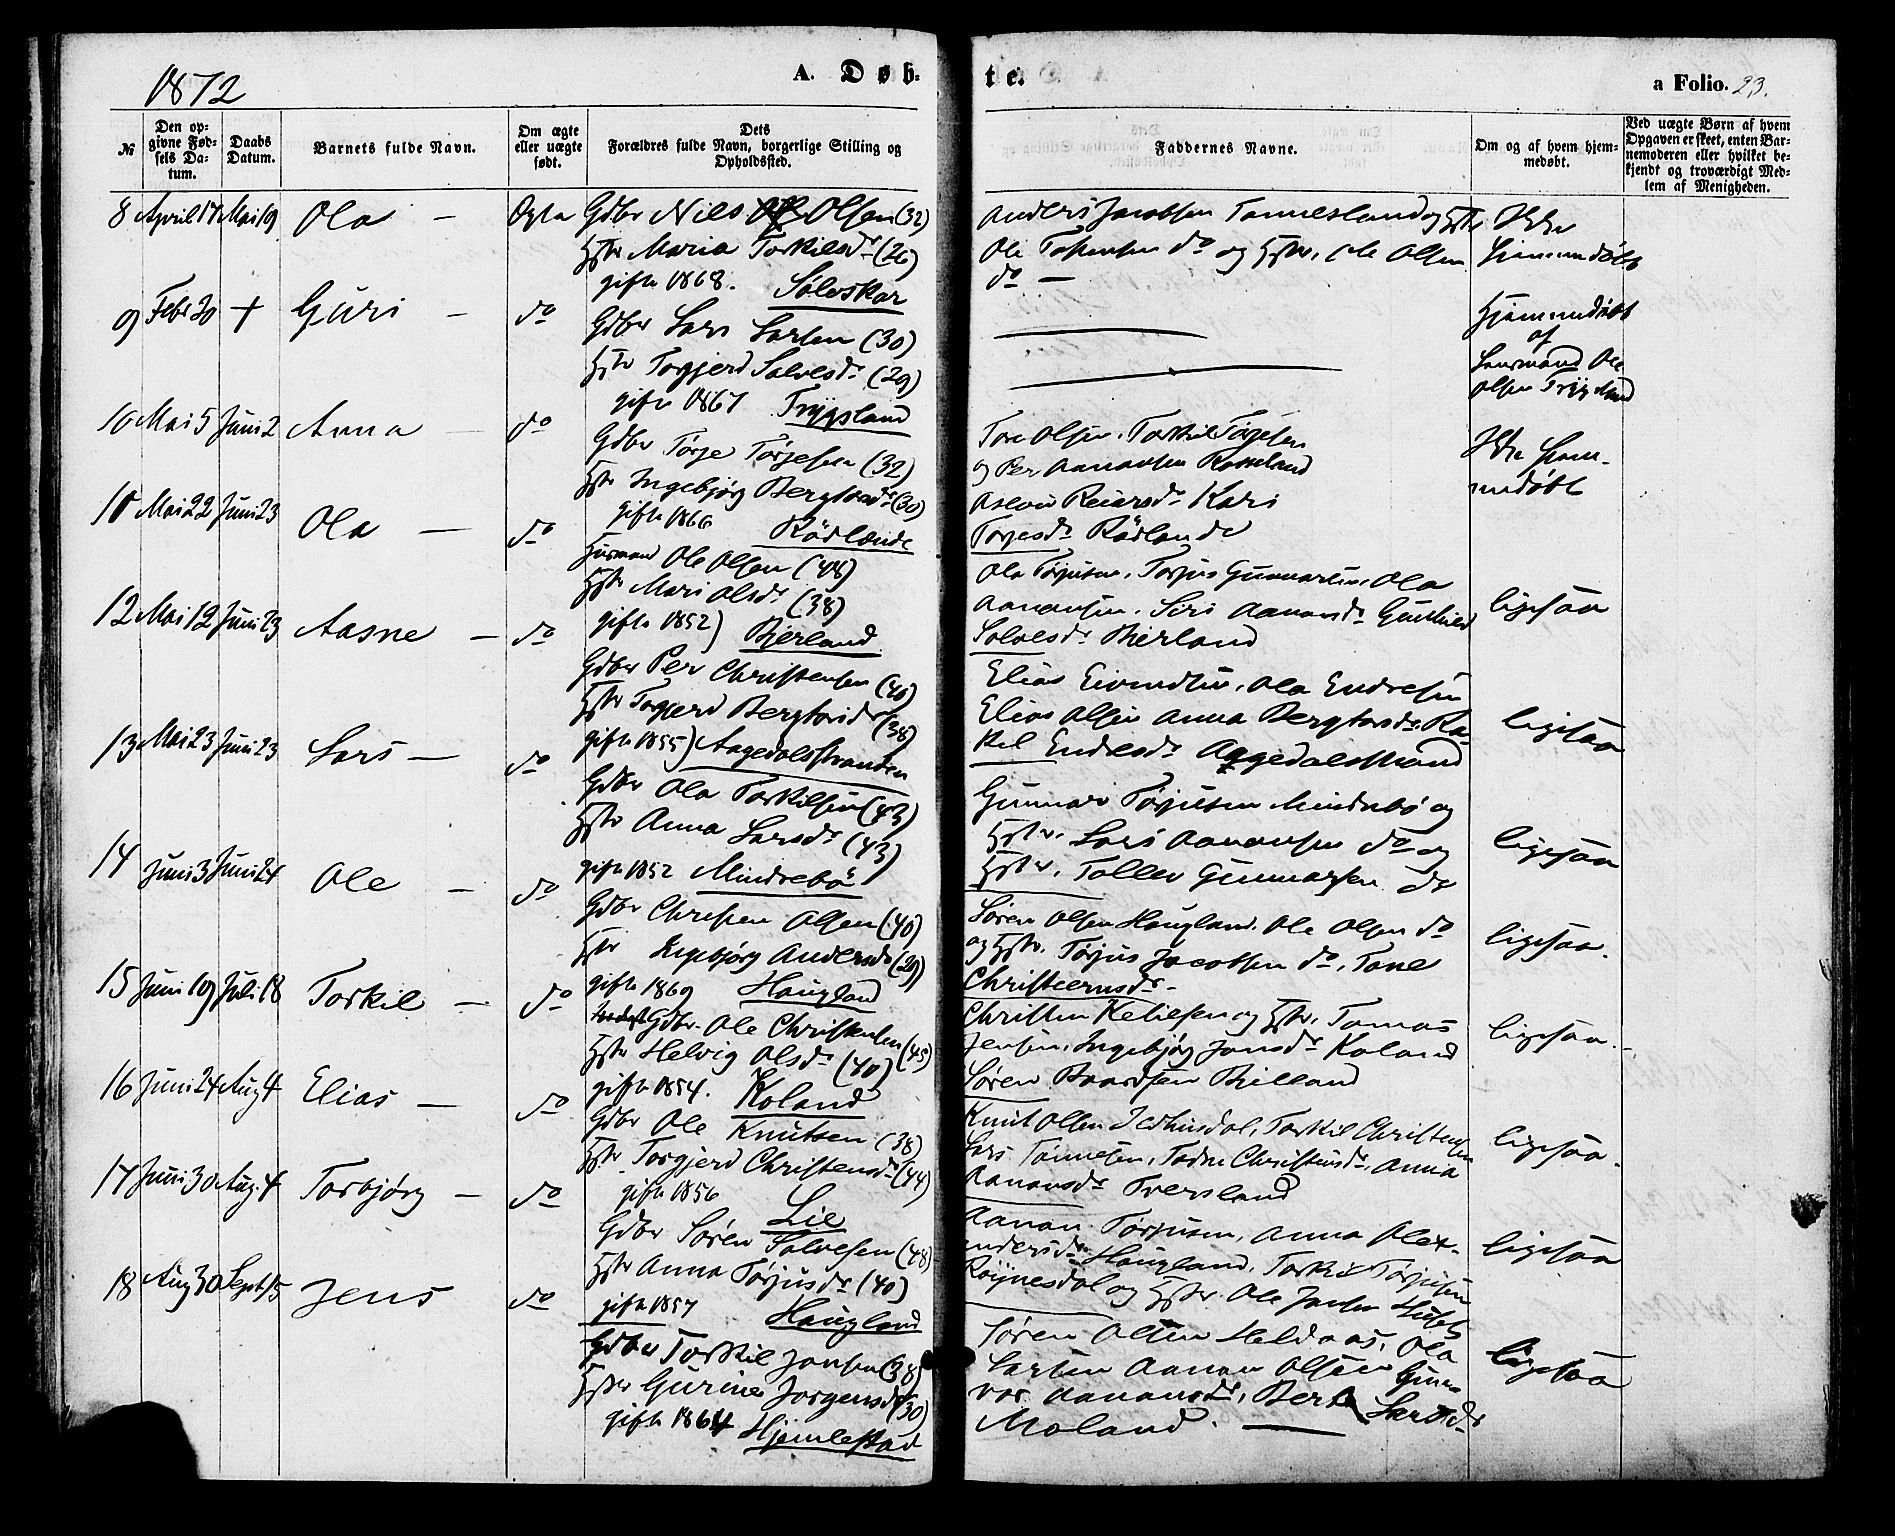 1872
A. Døb-
te.
a Folio. 23.
№
Den op-
givne Fød-
sels Da-
tum.
Daabs
Datum.
Barnets fulde Navn.
Om ægte
eller uægte
født.
Dets
Forældres fulde Navn, borgerlige Stilling og
Opholdssted.
Faddernes Navne.
Om og af hvem hjem-
medøbt.
Ved uægte Børn af hvem
Opgaven er skeet, enten Bar-
nemoderen eller hvilket be-
kjendt og troværdigt Med-
lem af Menigheden.
8 April 17 Mai 19 Ola — Ægte Gdbr Niels Olsen (32)
Hstr Maria Torkilsdr (26)
gifte 1868. Solvskar
Anders Jacobsen Tonnesland og Hstr
Ole do og Hstr, Ole Olsen
do —
Ikke
hjemmedøbt
9 Febr 20 + Guri — do Gdbr Lars Larsen (30)
Hstr Torgjerd Salvesdr (29)
gifte 1867 Trygsland
Hjemmedøbt
af
Ole
Olsen Trygsland
10 Mai 5 Juni 2 Anna — do Gdbr Tørje Tørjesen (32)
Hstr Ingebjørg Bergtorsdr (30)
gifte 1866 Rødlande
Tore Olsen, Torkil Tørjesen
og Per Aanansen Rosseland
Aslou Reiersdr Kari
Torjesdr Rødlande
Ikke hjem-
medøbt
10 Mai 22 Juni 23 Ola — do Husmand Ole Olsen (44)
Hstr Mari Olsdr (38)
gifte 1852) Bjerland
Ola Tørjusen, Torjus Gunnarsen, Ola
Aanansen, Siri Aanansdr Gunhild
Salvesdr Bierland
ligesaa
12 Mai 12 Juni 23 Aasne — do Gdbr Per Christensen (40)
Hstr Torgjerd Bergtorsdr (38)
gifte 1855) Aagedalsstranden
Elias Eivindsen, Ola Endresen
Elias Olsen Anna Bergtorsdr Ra-
kel Endresdr Aagedalsstrand
ligesaa
13 Mai 23 Juni 23 Lars — do Gdbr Ola Torkilsen (43)
Hstr Anna Larsdr (43)
gifte 1852 Mindrebø
Gunnar Tørjusen Mindrebø og
Hstr. Lars Aanansen do og
Hstr. Tollev Gunnarsen do
ligesaa
14 Juni 3 Juni 24 Ole — do Gdbr Christen Olsen (40)
Hstr Ingebjørg Andersdr (29)
gifte 1869 Haugland
Søren Olsen Haugland. Ole Olsen do
og Hstr. Tørjus Jacobsen do, Tone
Christensdr —
ligesaa.
15 Juni 19 Juli 18 Torkil — do Gdbr. Ole Christensen (45)
Hstr Helvig Olsdr (40)
gifte 1854. Koland
Christen Ketilsen og Hstr, Tomas
Jensen, Ingebjørg Jonsdr Koland
Søren Baardsen Bielland
ligesaa.
16 Juni 24 Aug 4 Elias — do Gdbr Ole Knutsen (38)
Hstr Torgjerd Christensdr (44)
gifte 1856 Lie
Knut Olsen, Torkil Christensen
Lars Tønnesen, Todne Christensdr, Anna
Aanansdr Tversland
ligesaa.
17 Juni 30 Aug. 4 Torbjørg — do Gdbr Søren Salvesen (48)
Hstr Anna Tørjusdr (40)
gifte 1857 Haugland
Aanan Tørjusen, Anna Alex-
andersdr Haugland, Torkil Tørjusen
Røynesdal og Hstr. Ole Jansen
ligesaa
18 Aug 30 Sept 15 Jens do Gdbr Torkil Jansen (38)
Hstr Gurine Jorgensdr (30)
gifte 1864 Hjemlestad
Søren Olsen Heldaas, Ola
Larsen Aanan Olsen Gun-
vor Aanansdr, Berte Larsdr
Moland. —
ligesaa